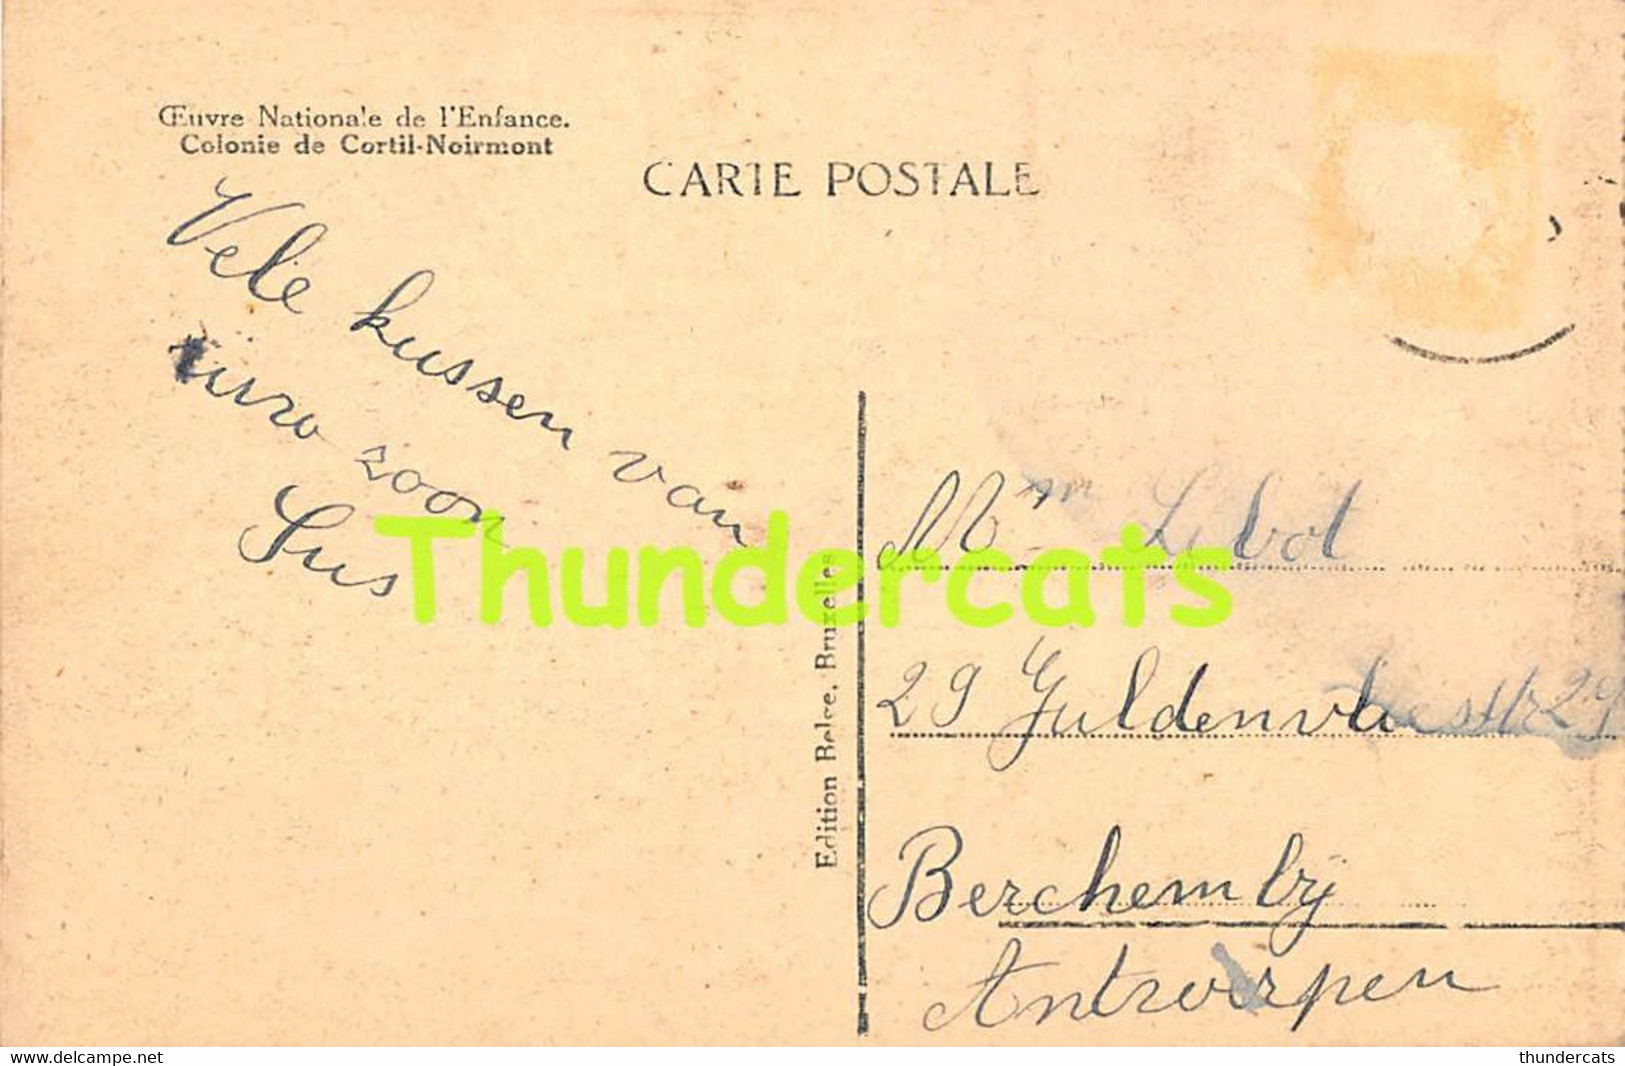 Œuvre Nationale de l'Enfance.
Colonie de Cortil-Noirmont
CARTE POSTALE
Vele kussen van
uwo zoon
Sus
Thundercats
Edition Belge, Bruxelles
Mm Lebot
29 Guldenvliesstr 29
Berchem bij
Antwerpen
www.delcampe.net
thundercats